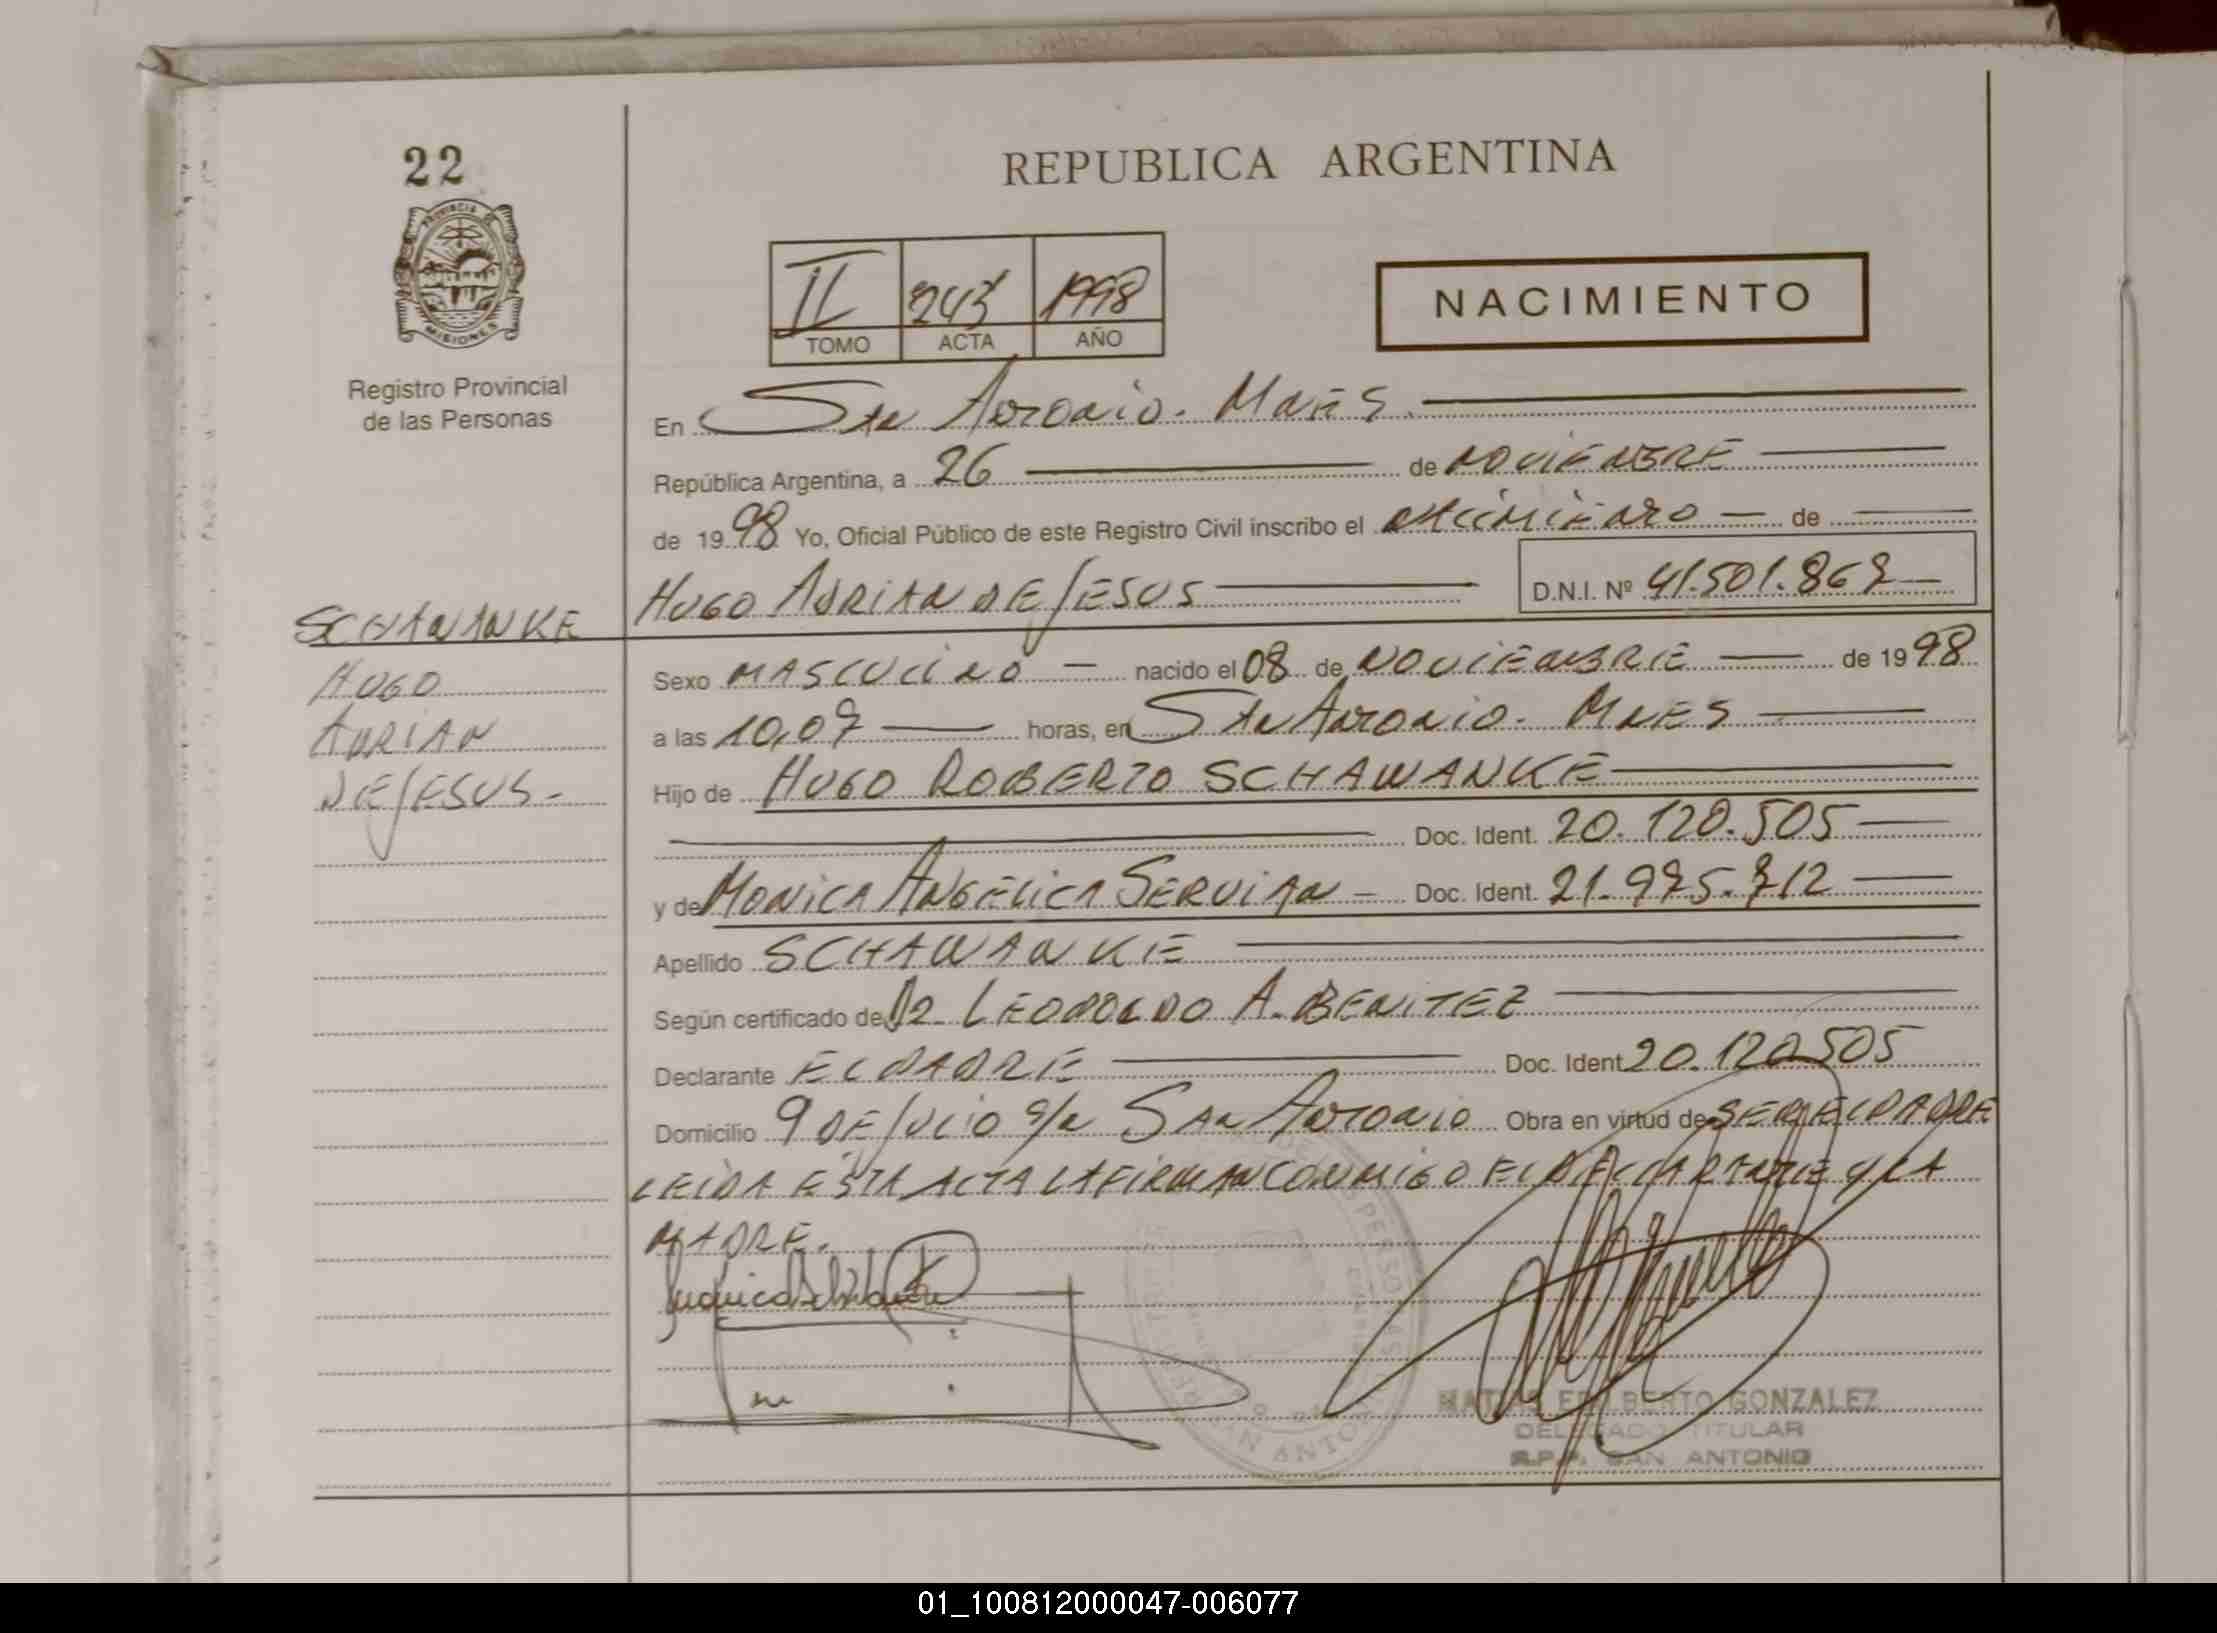 22
REPUBLICA ARGENTINA
PROVINCIA DE
MISIONES
Registro Provincial
de las Personas
II 243 1998
TOMO ACTA AÑO
NACIMIENTO
En San Antonio. Mnes
República Argentina, a 26 de NOVIEMBRE
de 1998 Yo, Oficial Público de este Registro Civil inscribo el NACIMIENTO de
HUGO ADRIAN DE JESUS D.N.I. Nº 41.501.867
SCHAWANKE
HUGO
ADRIAN
DE JESUS
Sexo MASCULINO nacido el 08 de NOVIEMBRE de 1998
a las 10,07 horas, en San Antonio. Mnes
Hijo de HUGO ROBERTO SCHAWANKE
Doc. Ident. 20.120.505
y de MONICA ANGELICA SERVIAN Doc. Ident. 21.975.712
Apellido SCHAWANKE
Según certificado de Dr. LEOPOLDO A. BENITEZ
Declarante EL PADRE Doc. Ident 20.120.505
Domicilio 9 DE JULIO s/n SAN ANTONIO Obra en virtud de SER EL PADRE
LEIDA ESTA ACTA LA FIRMAN CONMIGO EL DECLARANTE Y LA
MADRE.
MATIAS EDILBERTO GONZALEZ
DELEGADO TITULAR
R.P.P. SAN ANTONIO
01_100812000047-006077